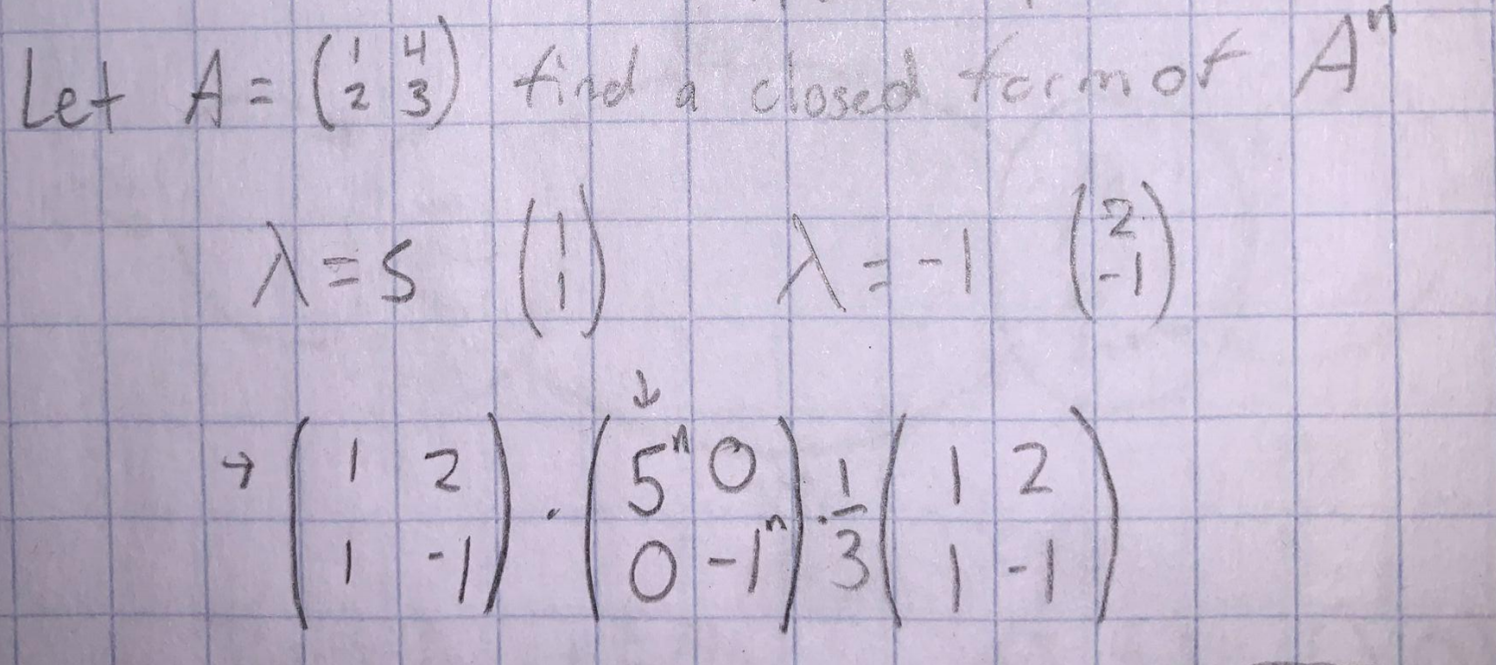 Let A = (1 4 2 3) find a closed form of Aⁿ
λ = 5 (1 1) λ = -1 (2 -1)
↓
→ (1 2 1 -1) · (5ⁿ 0 0 -1ⁿ) · 1/3 (1 2 1 -1)